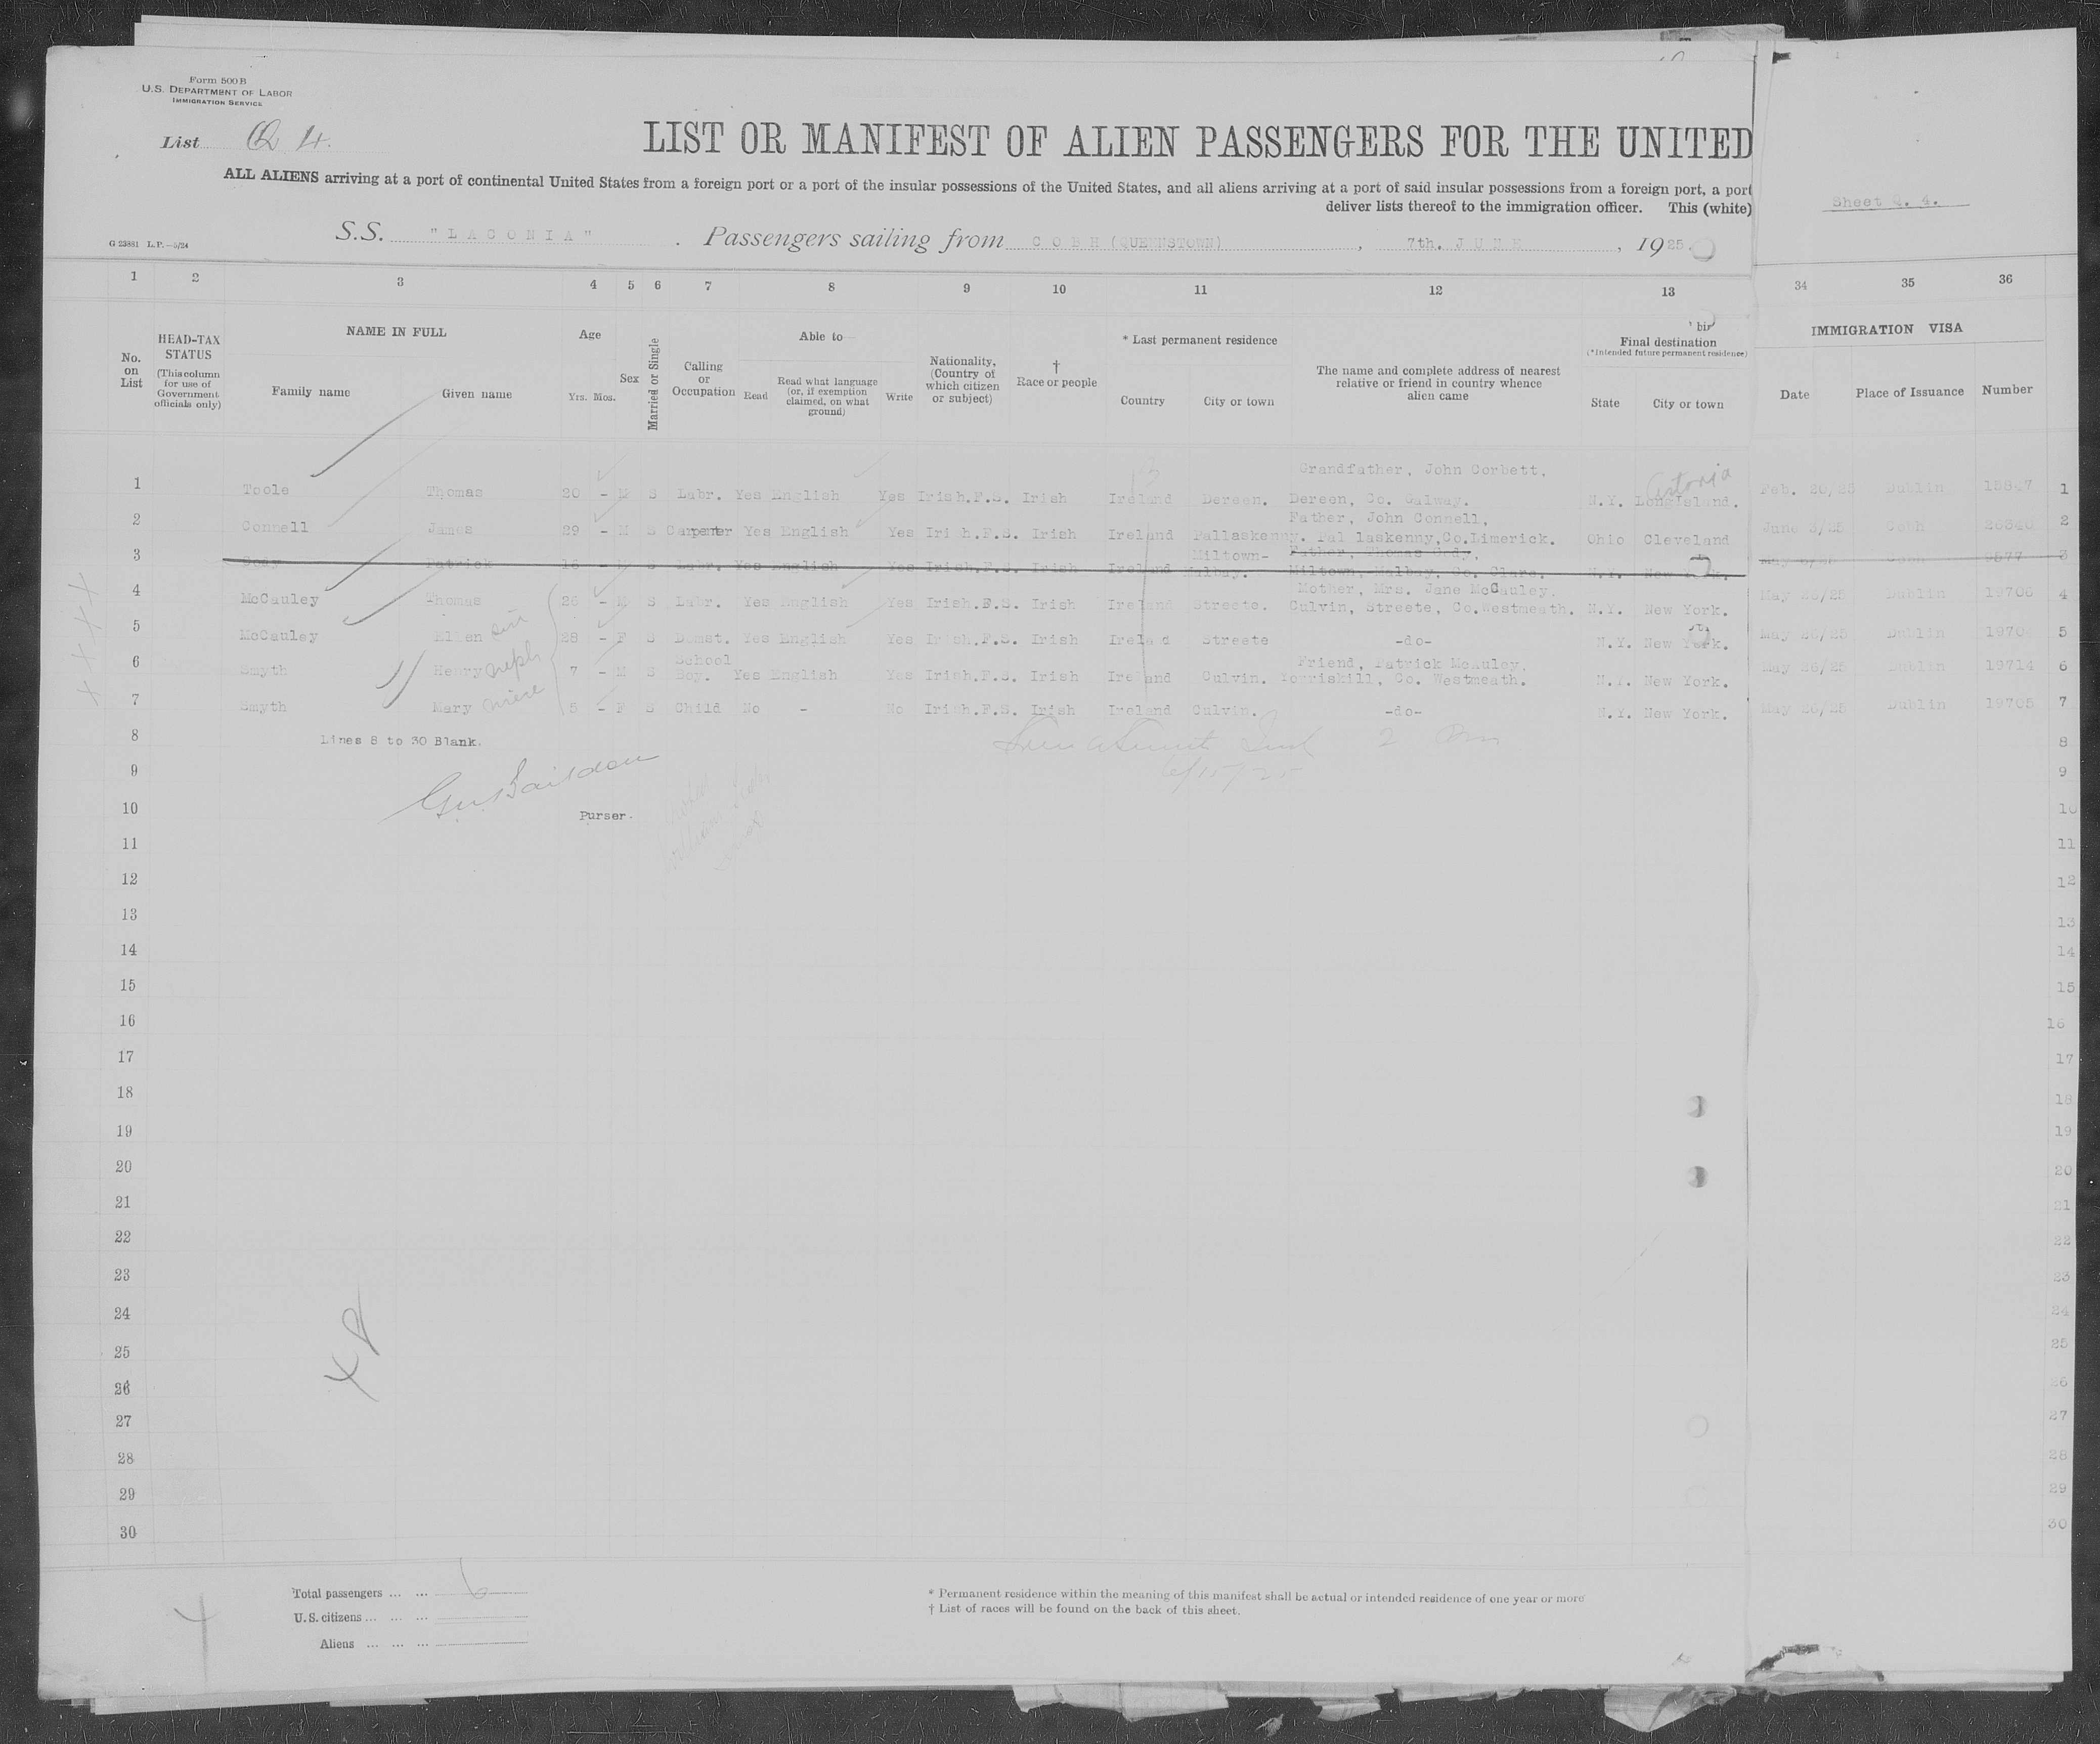 Form 500 B
U.S. DEPARTMENT OF LABOR
IMMIGRATION SERVICE
List Q 4.
LIST OR MANIFEST OF ALIEN PASSENGERS FOR THE UNITED
ALL ALIENS arriving at a port of continental United States from a foreign port or a port of the insular possessions of the United States, and all aliens arriving at a port of said insular possessions from a foreign port, a port
deliver lists thereof to the immigration officer. This (white)
Sheet Q. 4.
G 23881 L.P.—5/24
S.S. "LACONIA". Passengers sailing from COBH (QUEENSTOWN), 7th. JUNE, 1925.
1 2 3 4 5 6 7 8 9 10 11 12 13 34 35 36
No. on List
HEAD-TAX STATUS (This column for use of Government officials only)
NAME IN FULL
Family name Given name
Age
Yrs. Mos.
Sex
Married or Single
Calling or Occupation
Able to
Read Read what language (or, if exemption claimed, on what ground) Write
Nationality, (Country of which citizen or subject)
† Race or people
* Last permanent residence
Country City or town
The name and complete address of nearest relative or friend in country whence alien came
Final destination
(*Intended future permanent residence)
State City or town
IMMIGRATION VISA
Date Place of Issuance Number
Grandfather, John Corbett. Astoria
1 Toole Thomas 20 - M S Labr. Yes English Yes Irish.F.S. Irish Ireland Dereen. Dereen, Co. Galway. N.Y. Long Island. Feb. 20/25 Dublin 15847 1
Father, John Connell,
2 Connell James 29 - M S Carpenter Yes English Yes Irish.F.S. Irish Ireland Pallaskenny. Pallaskenny, Co.Limerick. Ohio Cleveland June 3/25 Cobh 2
Miltown- Father, Thomas
3 Patrick M S Labr. Yes English Yes Irish.F.S. Irish Ireland Malbay. Miltown, Malbay, Co. Clare. N.Y. New York. Cobh 3
Mother, Mrs. Jane McCauley.
4 McCauley Thomas 26 - M S Labr. Yes English Yes Irish.F.S. Irish Ireland Streete. Culvin, Streete, Co.Westmeath. N.Y. New York. May 26/25 Dublin 19706 4
5 McCauley Ellen 28 - F S Domst. Yes English Yes Irish.F.S. Irish Ireland Streete -do- N.Y. New York. May 26/25 Dublin 5
School Friend, Patrick McAuley.
6 Smyth Henry neph 7 - M S Boy. Yes English Yes Irish.F.S. Irish Ireland Culvin. Co. Westmeath. N.Y. New York. May 26/25 Dublin 19714 6
7 Smyth Mary niece 5 - F S Child No - No Irish.F.S. Irish Ireland Culvin. -do- N.Y. New York. May 26/25 Dublin 19705 7
8 Lines 8 to 30 Blank. 8
9 6/15/25 9
10 Purser. 10
11 11
12 12
13 13
14 14
15 15
16 16
17 17
18 18
19 19
20 20
21 21
22 22
23 23
24 24
25 25
26 26
27 27
28 28
29 29
30 30
Total passengers ... ... 6
U.S. citizens ... ... ...
Aliens ... ... ...
* Permanent residence within the meaning of this manifest shall be actual or intended residence of one year or more
† List of races will be found on the back of this sheet.